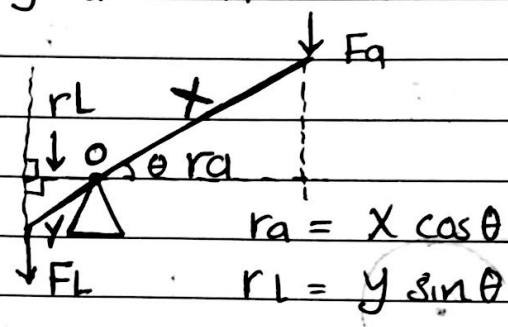 Fa
rL
x
O
θ ra
y
FL
ra = x cosθ
rL = y sinθ